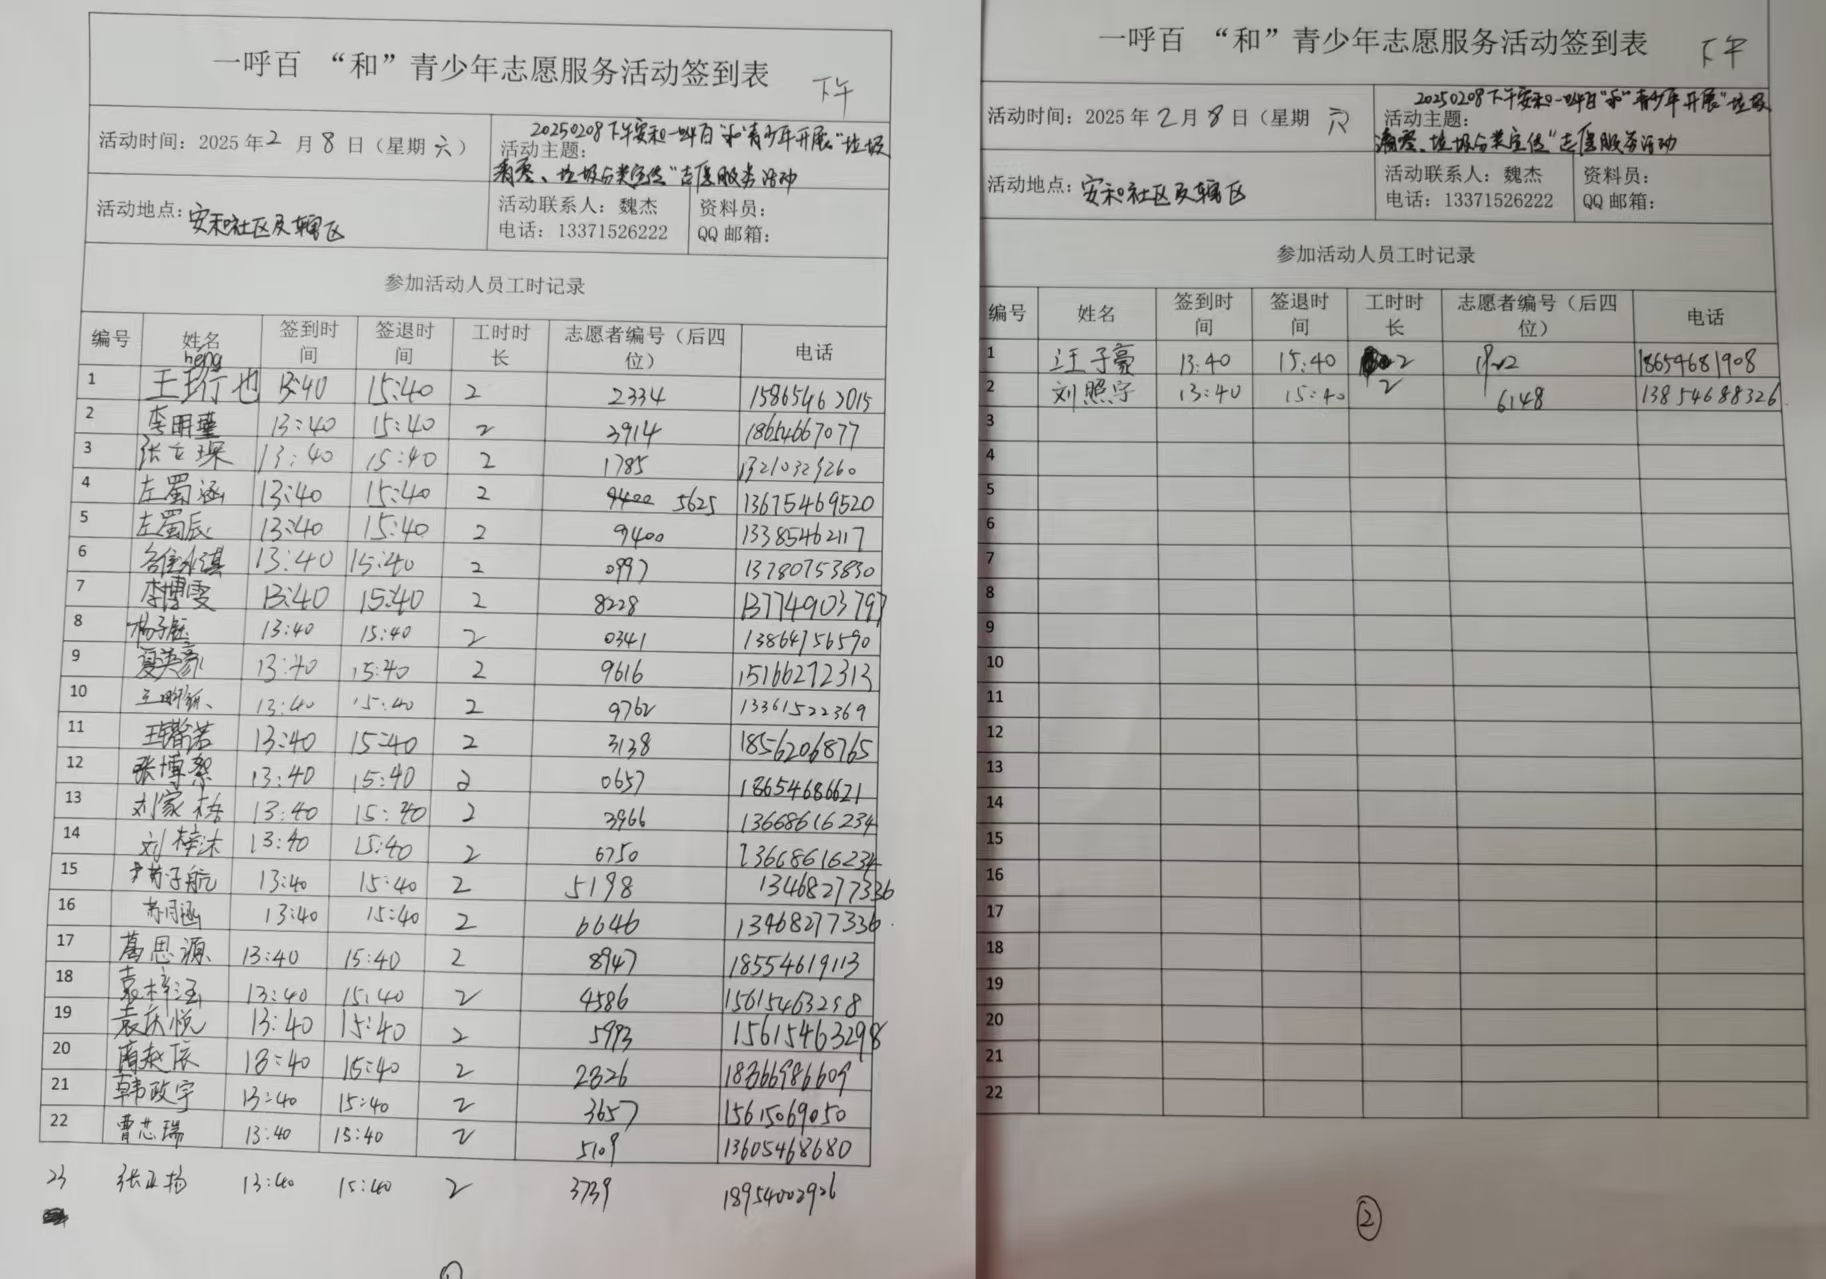 一呼百 “和”青少年志愿服务活动签到表
下午
活动时间：2025年2月8日（星期六）
20250208下午安和一呼百“和”青少年开展“垃圾
活动主题：
清零、垃圾分类宣传”志愿服务活动
活动地点：安和社区及辖区
活动联系人：魏杰 资料员：
电话：13371526222 QQ邮箱：
参加活动人员工时记录
编号 姓名 签到时间 签退时间 工时时长 志愿者编号（后四位） 电话
héng
1 王珩也 13:40 15:40 2 2334
2 李明瑾 13:40 15:40 2 3914 18654667077
3 13:40 15:40 2 1785 13210323260
4 左蜀涵 13:40 15:40 2 9400 5625 13675469520
5 左蜀辰 13:40 15:40 2 9400 13385462117
6 13:40 15:40 2 0997 13780753830
7 李博雯 13:40 15:40 2 8228 13774903797
8 杨子钰 13:40 15:40 2 0341 13864756590
9 夏英豪 13:40 15:40 2 9616 15166272313
10 13:40 15:40 2 9762 13361522369
11 13:40 15:40 2 3138 18562068765
12 张博絮 13:40 15:40 2 0657 18654686621
13 刘家栋 13:40 15:40 2 3966 13668616234
14 刘梓沐 13:40 15:40 2 6750 13668616234
15 苏子航 13:40 15:40 2 5198 13468277336
16 苏同涵 13:40 15:40 2 6646 13468277336
17 葛思源 13:40 15:40 2 8947 18554619113
18 袁梓涵 13:40 15:40 2 4586 15615463298
19 袁庆悦 13:40 15:40 2 5993 15615463298
20 13:40 15:40 2 2326 18366986609
21 韩政宇 13:40 15:40 2 3657 15615069050
22 曹芯瑞 13:40 15:40 2 5109 13605468680
23 张亚扬 13:40 15:40 2 3739 18954002926
一呼百 “和”青少年志愿服务活动签到表
下午
活动时间：2025年2月8日（星期 六
20250208下午安和一呼百“和”青少年开展“垃圾
活动主题：
清零、垃圾分类宣传”志愿服务活动
活动地点：安和社区及辖区
活动联系人：魏杰 资料员：
电话：13371526222 QQ邮箱：
参加活动人员工时记录
编号 姓名 签到时间 签退时间 工时时长 志愿者编号（后四位） 电话
1 汪子豪 13:40 15:40 2 18654681908
2 刘照宇 13:40 15:40 2 6148 13854688326
3
4
5
6
7
8
9
10
11
12
13
14
15
16
17
18
19
20
21
22
②